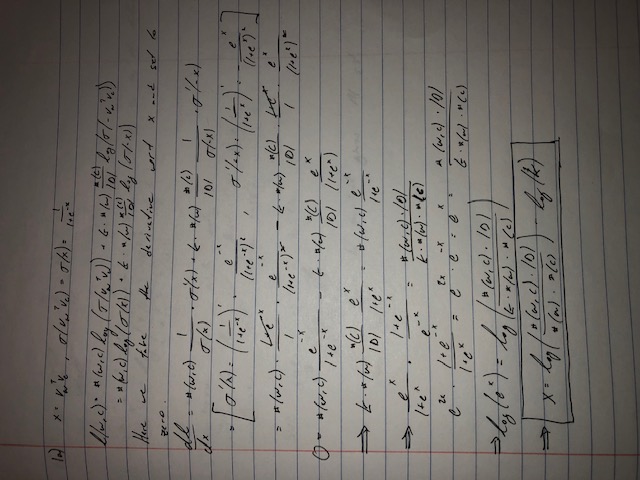 1a) x = v_w^T v_c , σ(v_w^T v_c) = σ(x) = 1/(1+e^{-x})
l(w,c) = #(w,c) log(σ(v_w^T v_c)) + k · #(w) #(c)/|D| log(σ(-v_w^T v_c))
= #(w,c) log(σ(x)) + k · #(w) #(c)/|D| log(σ(-x))
Here we take the derivative word x and set to
zero.
dl/dx = #(w,c) 1/σ(x) · σ'(x) + k · #(w) #(c)/|D| 1/σ(-x) · σ'(-x)
= [ σ'(x) = (1/(1+e^{-x}))' = e^{-x}/(1+e^{-x})^2 , σ'(-x) = (1/(1+e^x))' = - e^x/(1+e^x)^2 ]
= #(w,c) · (1+e^{-x})/1 · e^{-x}/(1+e^{-x})^2 - k · #(w) #(c)/|D| · (1+e^x)/1 · e^x/(1+e^x)^2
0 = #(w,c) e^{-x}/(1+e^{-x}) - k · #(w) #(c)/|D| e^x/(1+e^x)
⇒ k · #(w) #(c)/|D| e^x/(1+e^x) = #(w,c) e^{-x}/(1+e^{-x})
⇒ e^x/(1+e^x) · (1+e^{-x})/e^{-x} = #(w,c) · |D| / k · #(w) · #(c)
e^{2x} · (1+e^{-x})/(1+e^x) = e^{2x} · e^{-x} = e^x = #(w,c) · |D| / k · #(w) · #(c)
⇒ log(e^x) = log(#(w,c) · |D| / k · #(w) · #(c))
⇒ x = log(#(w,c) · |D| / #(w) · #(c)) - log(k)